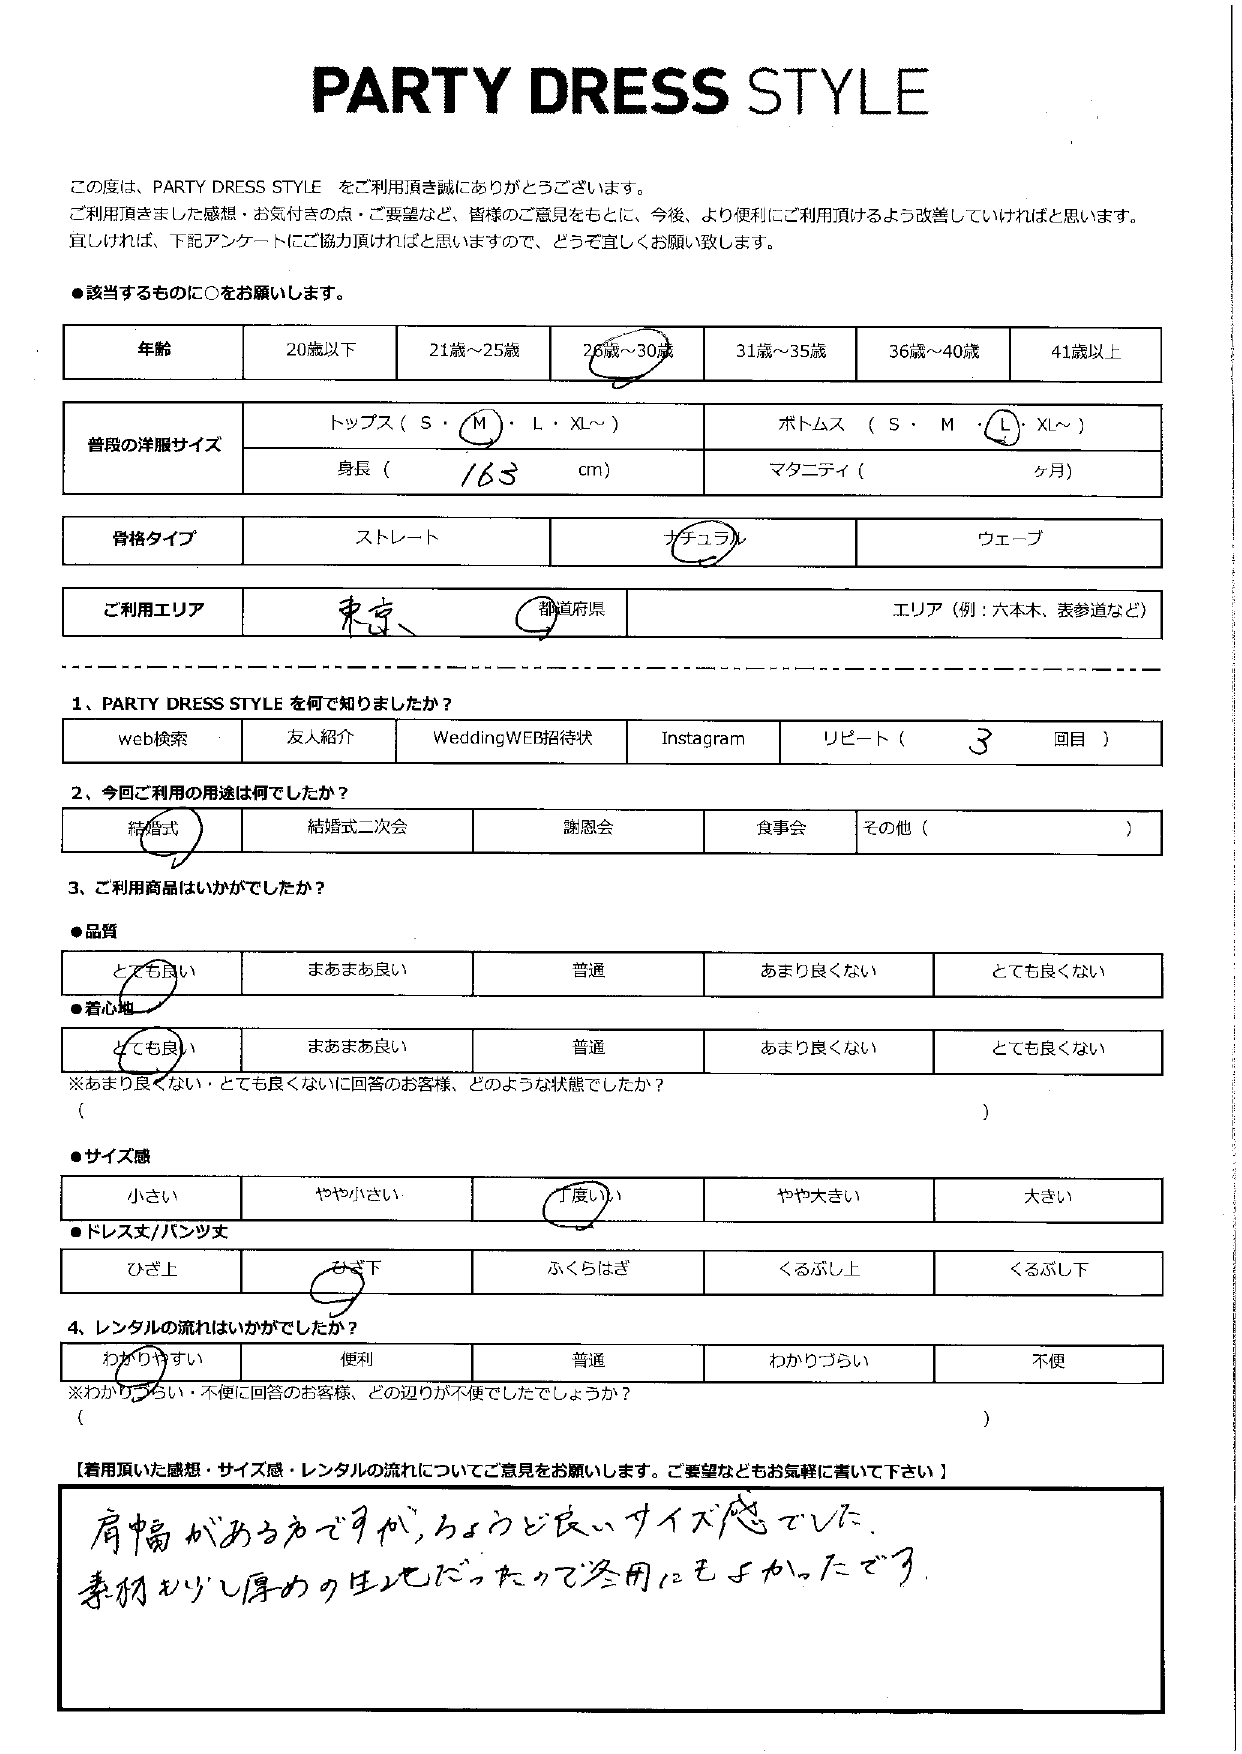 PARTY DRESS STYLE
この度は、PARTY DRESS STYLE　をご利用頂き誠にありがとうございます。
ご利用頂きました感想・お気付きの点・ご要望など、皆様のご意見をもとに、今後、より便利にご利用頂けるよう改善していければと思います。
宜しければ、下記アンケートにご協力頂ければと思いますので、どうぞ宜しくお願い致します。
●該当するものに○をお願いします。
年齢 20歳以下 21歳～25歳 26歳～30歳 31歳～35歳 36歳～40歳 41歳以上
普段の洋服サイズ トップス（ S ・ M ・ L ・ XL～ ） ボトムス （ S ・ M ・ L ・ XL～ ）
身長（ 163 cm） マタニティ（ ヶ月）
骨格タイプ ストレート ナチュラル ウェーブ
ご利用エリア 東京 都道府県 エリア（例：六本木、表参道など）
1、PARTY DRESS STYLE を何で知りましたか？
web検索 友人紹介 WeddingWEB招待状 Instagram リピート（ 3 回目 ）
2、今回ご利用の用途は何でしたか？
結婚式 結婚式二次会 謝恩会 食事会 その他（ ）
3、ご利用商品はいかがでしたか？
●品質
とても良い まあまあ良い 普通 あまり良くない とても良くない
●着心地
とても良い まあまあ良い 普通 あまり良くない とても良くない
※あまり良くない・とても良くないに回答のお客様、どのような状態でしたか？
（ ）
●サイズ感
小さい やや小さい 丁度いい やや大きい 大きい
●ドレス丈/パンツ丈
ひざ上 ひざ下 ふくらはぎ くるぶし上 くるぶし下
4、レンタルの流れはいかがでしたか？
わかりやすい 便利 普通 わかりづらい 不便
※わかりづらい・不便に回答のお客様、どの辺りが不便でしたでしょうか？
（ ）
【着用頂いた感想・サイズ感・レンタルの流れについてご意見をお願いします。ご要望などもお気軽に書いて下さい 】
肩幅がある方ですが、ちょうど良いサイズ感でした.
素材も少し厚めの生地だったので冬用にもよかったです.